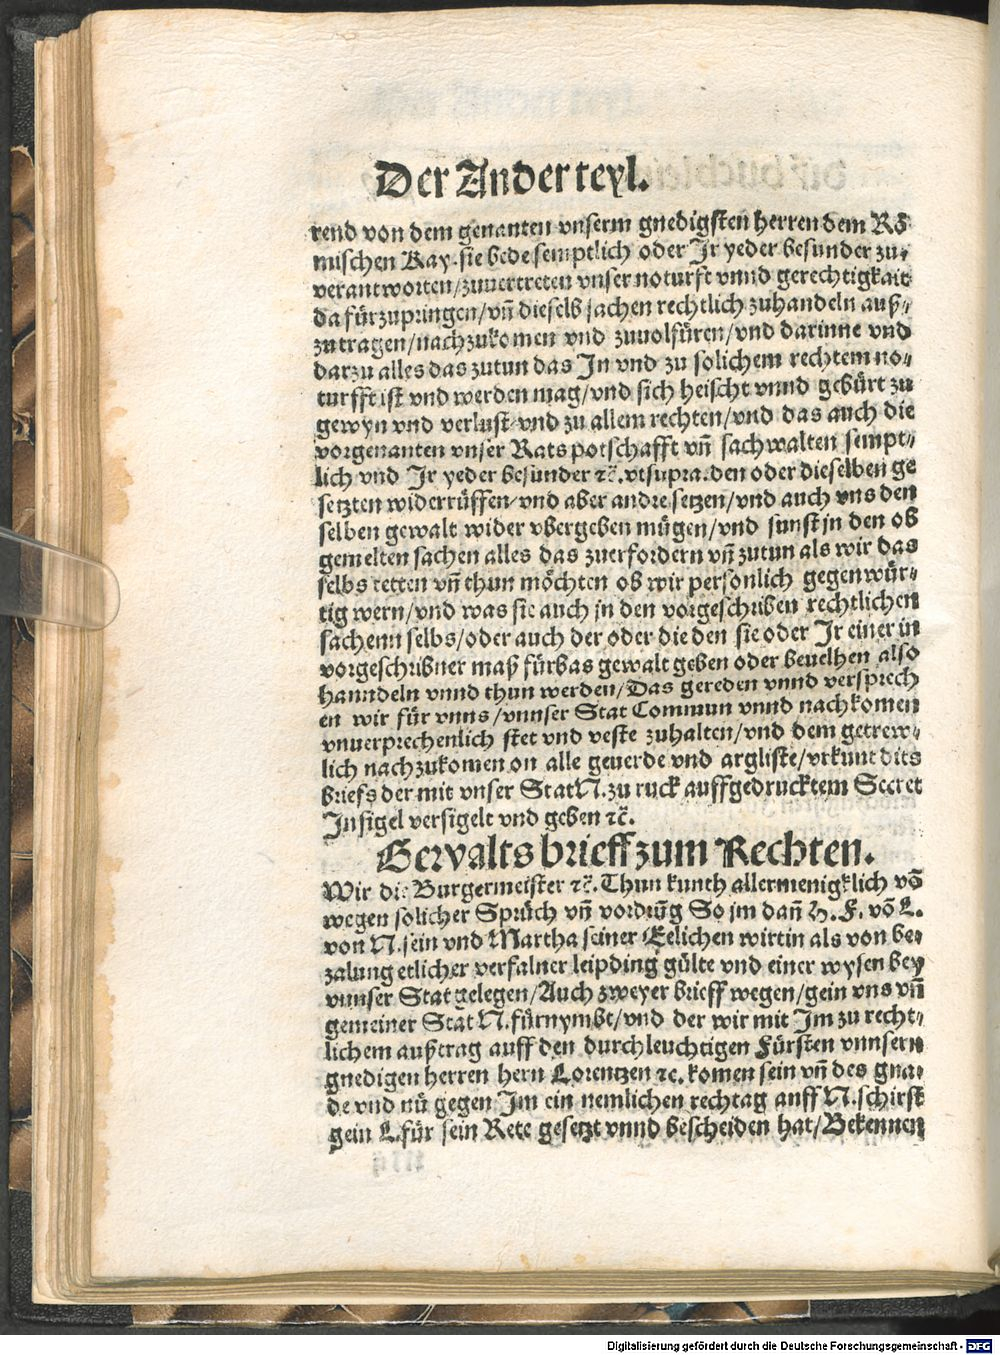 Der Ander teyl.
rend von dem genanten vnserm gnedigsten herren dem Rö
mischen Kay. sie bede semptlich oder Ir yeder besunder zu-
verantworten/zuuertreten vnser noturft vnnd gerechtigkait
da fürzupringen/vn̄ dieselb sachen rechtlich zuhandeln auß-
zutragen/nachzukomen vnd zuuolfüren/vnd darinne vnd
darzu alles das zutun das In vnd zu solichem rechtem no-
turfft ist vnd werden mag/vnd sich heischt vnnd gebürt zu
gewyn vnd verlust vnd zu allem rechten/vnd das auch die
vorgenanten vnser Rats potschafft vn̄ sachwalten sempt-
lich vnd Ir yeder besunder ⁊c̄. vtsupra. den oder dieselben ge
setzten widerrüffen/vnd aber andre setzen/vnd auch vns den
selben gewalt wider vbergeben mügen/vnd sunst in den ob
gemelten sachen alles das zuerfordern vn̄ zutun als wir das
selbs tetten vn̄ thun möchten ob wir personlich gegenwür-
tig wern/vnd was sie auch in den vorgeschriben rechtlichen
sachenn selbs/oder auch der oder die den sie oder Ir einer in
vorgeschribner maß fürbas gewalt geben oder beuelhen also
hanndeln vnnd thun werden/Das gereden vnnd versprech
en wir für vnns/vnnser Stat Commun vnnd nachkomen
vnuerprechenlich stet vnd veste zuhalten/vnd dem getrew-
lich nachzukomen on alle geuerde vnd argliste/vrkunt dits
briefs der mit vnser Stat N. zu ruck auffgedrucktem Secret
Insigel versigelt vnd geben ⁊c̄.
Gewalts brieff zum Rechten.
Wir die Burgermeister ⁊c̄. Thun kunth allermenigklich vō
wegen solicher Sprüch vn̄ vordrūg So im dan̄ H. F. vō L.
von N. sein vnd Martha seiner Eelichen wirtin als von be-
zalung etlicher verfalner leipding gülte vnd einer wysen bey
vnnser Stat gelegen/Auch zweyer brieff wegen/gein vns vn̄
gemeiner Stat N. fürnymbt/vnd der wir mit Im zu recht-
lichem außtrag auff den durchleuchtigen Fürsten vnnsern
gnedigen herren hern Lorentzen ⁊c. komen sein vn̄ des gna-
de vnd nū gegen Im ein nemlichen rechtag anff N. schirst
gein L für sein Rete gesetzt vnnd bescheiden hat/Bekennen
Digitalisierung gefördert durch die Deutsche Forschungsgemeinschaft - DFG